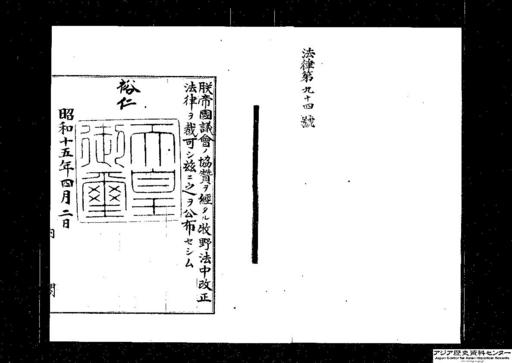 法律第九十四號
朕帝國議會ノ協贊ヲ經タル牧野法中改正
法律ヲ裁可シ茲ニ之ヲ公布セシム
裕仁
天皇御璽
昭和十五年四月二日
内閣
アジア歴史資料センター
Japan Center for Asian Historical Records